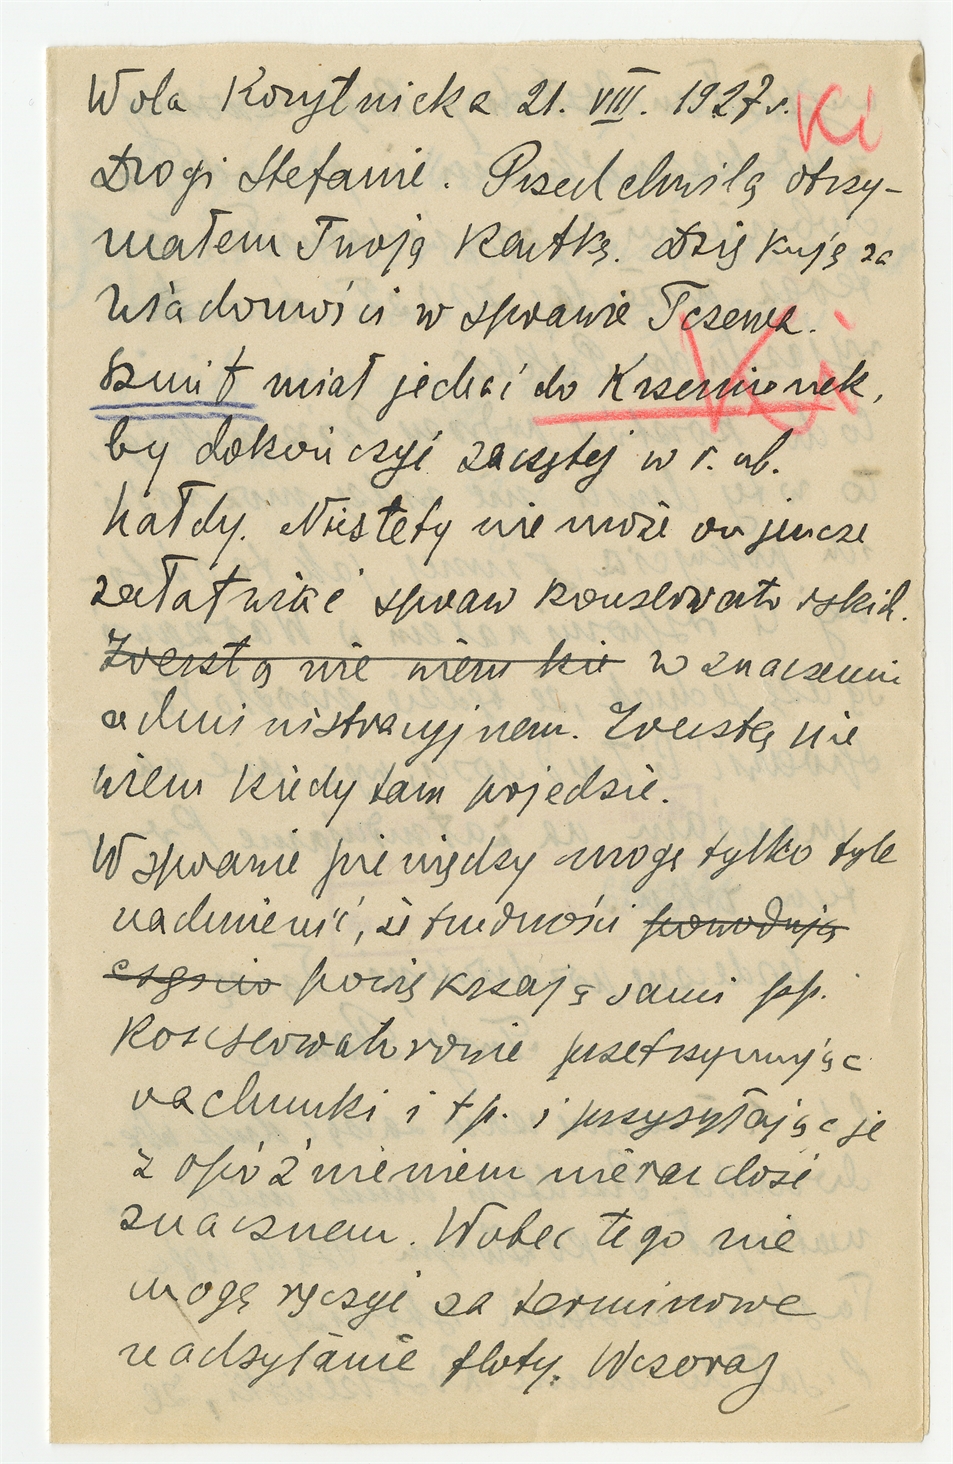 Wola Korytnicka 21. VIII. 1927 r. Ki
Drogi Stefanie. Przed chwilą otrzy-
małem Twoją kartkę. Dziękuję za
wiadomości w sprawie Tczewa.
Szmit miał jechać do Krzemionek, Ki
by dokończyć zaczętej w r. ub.
hałdy. Niestety nie może on jeszcze
załatwiać spraw konserwatorskich.
Zresztą nie wiem kie w znaczeniu
administracyjnem. Zresztą nie
wiem kiedy tam pojedzie.
W sprawie pieniędzy mogę tylko tyle
nadmienić, iż trudności powodują
częścio powiększają sami pp.
Konserwatorowie przetrzymując
rachunki i t p. i przysyłając je
z opóźnieniem nieraz dość
znacznem. Wobec tego nie
mogę ręczyć za terminowe
nadsyłanie floty. Wczoraj